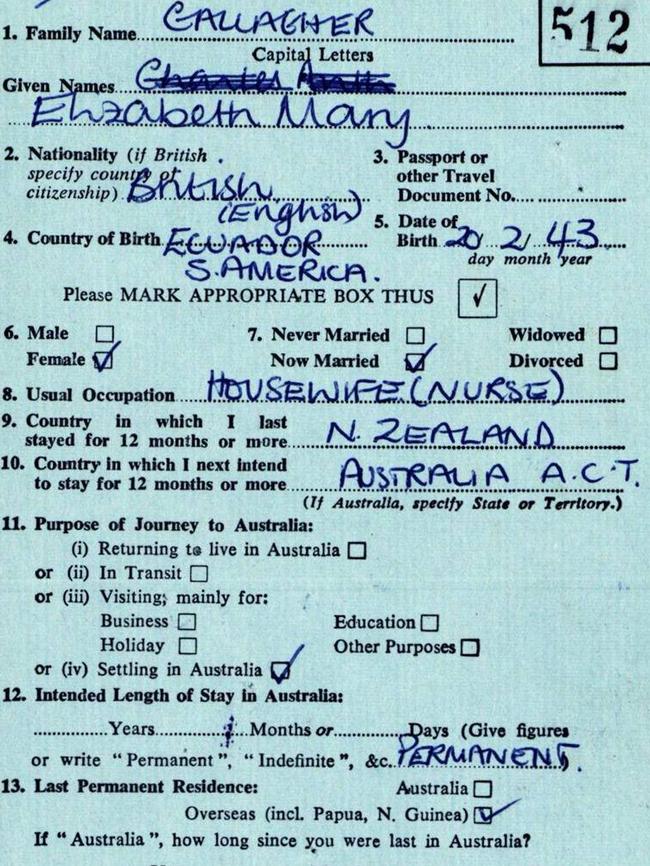 512
1. Family Name GALLAGHER
Capital Letters
Given Names
Elizabeth Mary
2. Nationality (if British
specify country of
citizenship) British
(English)
3. Passport or
other Travel
Document No.
4. Country of Birth ECUADOR
S. AMERICA.
5. Date of
Birth 20 2 43
day month year
Please MARK APPROPRIATE BOX THUS ✓
6. Male ☐ 7. Never Married ☐ Widowed ☐
Female ☑ Now Married ☑ Divorced ☐
8. Usual Occupation HOUSEWIFE (NURSE)
9. Country in which I last
stayed for 12 months or more N. ZEALAND
10. Country in which I next intend
to stay for 12 months or more AUSTRALIA A.C.T.
(If Australia, specify State or Territory.)
11. Purpose of Journey to Australia:
(i) Returning to live in Australia ☐
or (ii) In Transit ☐
or (iii) Visiting; mainly for:
Business ☐ Education ☐
Holiday ☐ Other Purposes ☐
or (iv) Settling in Australia ☑
12. Intended Length of Stay in Australia:
Years Months or Days (Give figures
or write "Permanent", "Indefinite", &c. PERMANENT.
13. Last Permanent Residence: Australia ☐
Overseas (incl. Papua, N. Guinea) ☑
If "Australia", how long since you were last in Australia?